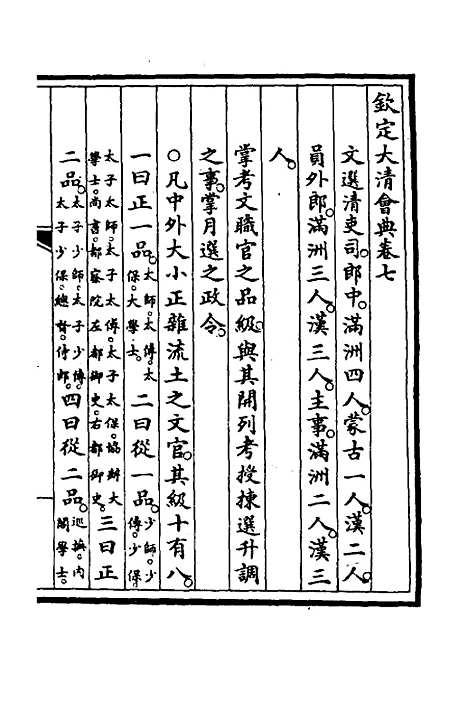 欽定大清會典卷七
文選清吏司。郎中。滿洲四人。蒙古一人。漢二人。
員外郎。滿洲三人。漢三人。主事。滿洲二人。漢三
人。
掌考文職官之品級。與其開列考授揀選升調
之事。掌月選之政令。
○凡中外大小正雜流土之文官。其級十有八。
一曰正一品。太師。太傅。太保。大學士。二曰從一品。少師。少傅。少保
太子太師。太子太傅。太子太保。協辦大學士。尚書。都察院左都御史。右都御史。三曰正
二品。太子少師。太子少傅。太子少保。總督。侍郎。四曰從二品。巡撫。內閣學士。